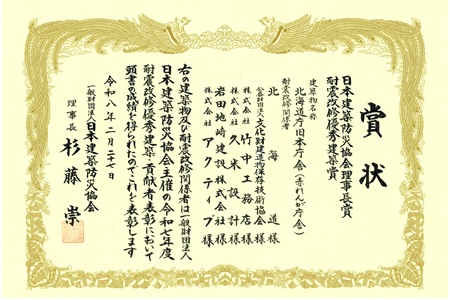 賞状
日本建築防災協会理事長賞
耐震改修優秀建築賞
建築物名称
北海道庁旧本庁舎(赤れんが庁舎)
耐震改修関係者
北海道様
公益財団法人文化財建造物保存技術協会様
株式会社竹中工務店様
株式会社久米設計様
岩田地崎建設株式会社様
株式会社アクティブ様
右の建築物及び耐震改修関係者は一般財団法人
日本建築防災協会主催の令和七年度
耐震改修優秀建築・貢献者表彰において
頭書の成績を得られたのでこれを表彰します
令和八年二月二十七日
一般財団法人日本建築防災協会
理事長 杉藤崇